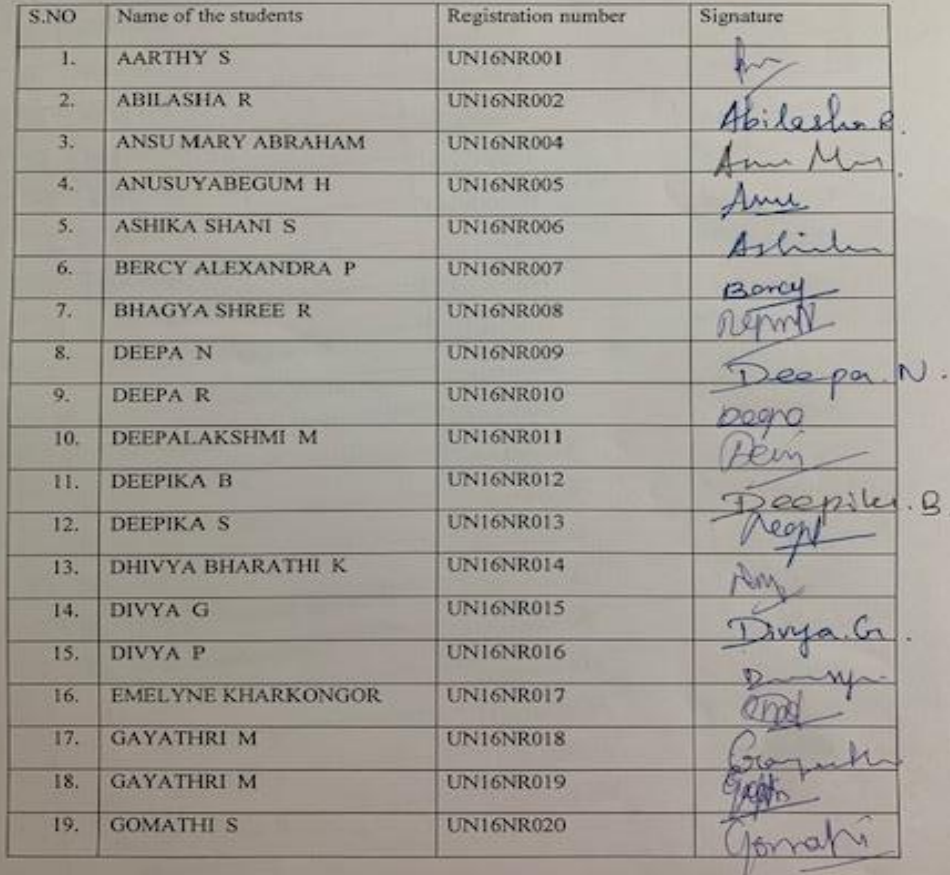 S.NO Name of the students Registration number Signature
1. AARTHY S UN16NR001
2. ABILASHA R UN16NR002 Abilasha R.
3. ANSU MARY ABRAHAM UN16NR004
4. ANUSUYABEGUM H UN16NR005 Anu
5. ASHIKA SHANI S UN16NR006 Ashika
6. BERCY ALEXANDRA P UN16NR007 Bercy
7. BHAGYA SHREE R UN16NR008
8. DEEPA N UN16NR009 Deepa. N.
9. DEEPA R UN16NR010 Deepa
10. DEEPALAKSHMI M UN16NR011
11. DEEPIKA B UN16NR012 Deepika. B
12. DEEPIKA S UN16NR013
13. DHIVYA BHARATHI K UN16NR014
14. DIVYA G UN16NR015 Divya. G.
15. DIVYA P UN16NR016
16. EMELYNE KHARKONGOR UN16NR017
17. GAYATHRI M UN16NR018
18. GAYATHRI M UN16NR019
19. GOMATHI S UN16NR020 Gomathi